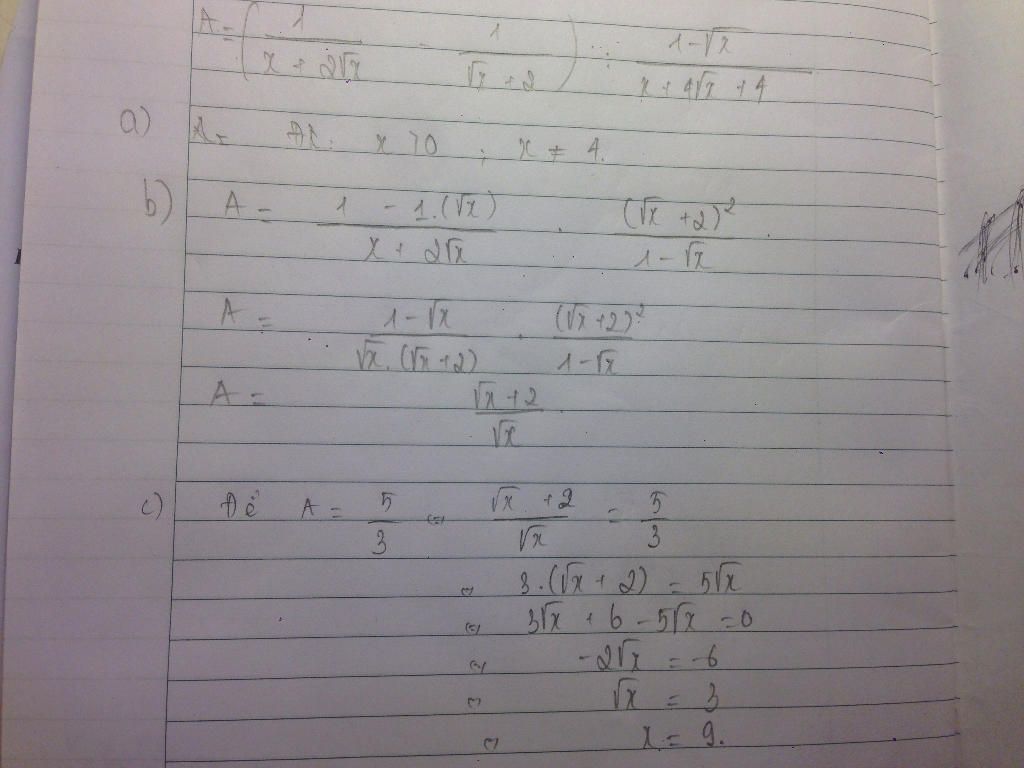 A = ( 1/(x + 2√x) - 1/(√x + 2) ) : (1-√x)/(x + 4√x + 4)
a) A = ĐK: x > 0 ; x ≠ 4.
b) A = (1 - 1.(√x))/(x + 2√x) . (√x + 2)²/(1-√x)
A = (1-√x)/(√x.(√x+2)) . (√x+2)²/(1-√x)
A = (√x+2)/√x
c) Để A = 5/3 <=> (√x + 2)/√x = 5/3
<=> 3.(√x + 2) = 5√x
<=> 3√x + 6 - 5√x = 0
<=> -2√x = -6
<=> √x = 3
<=> x = 9.